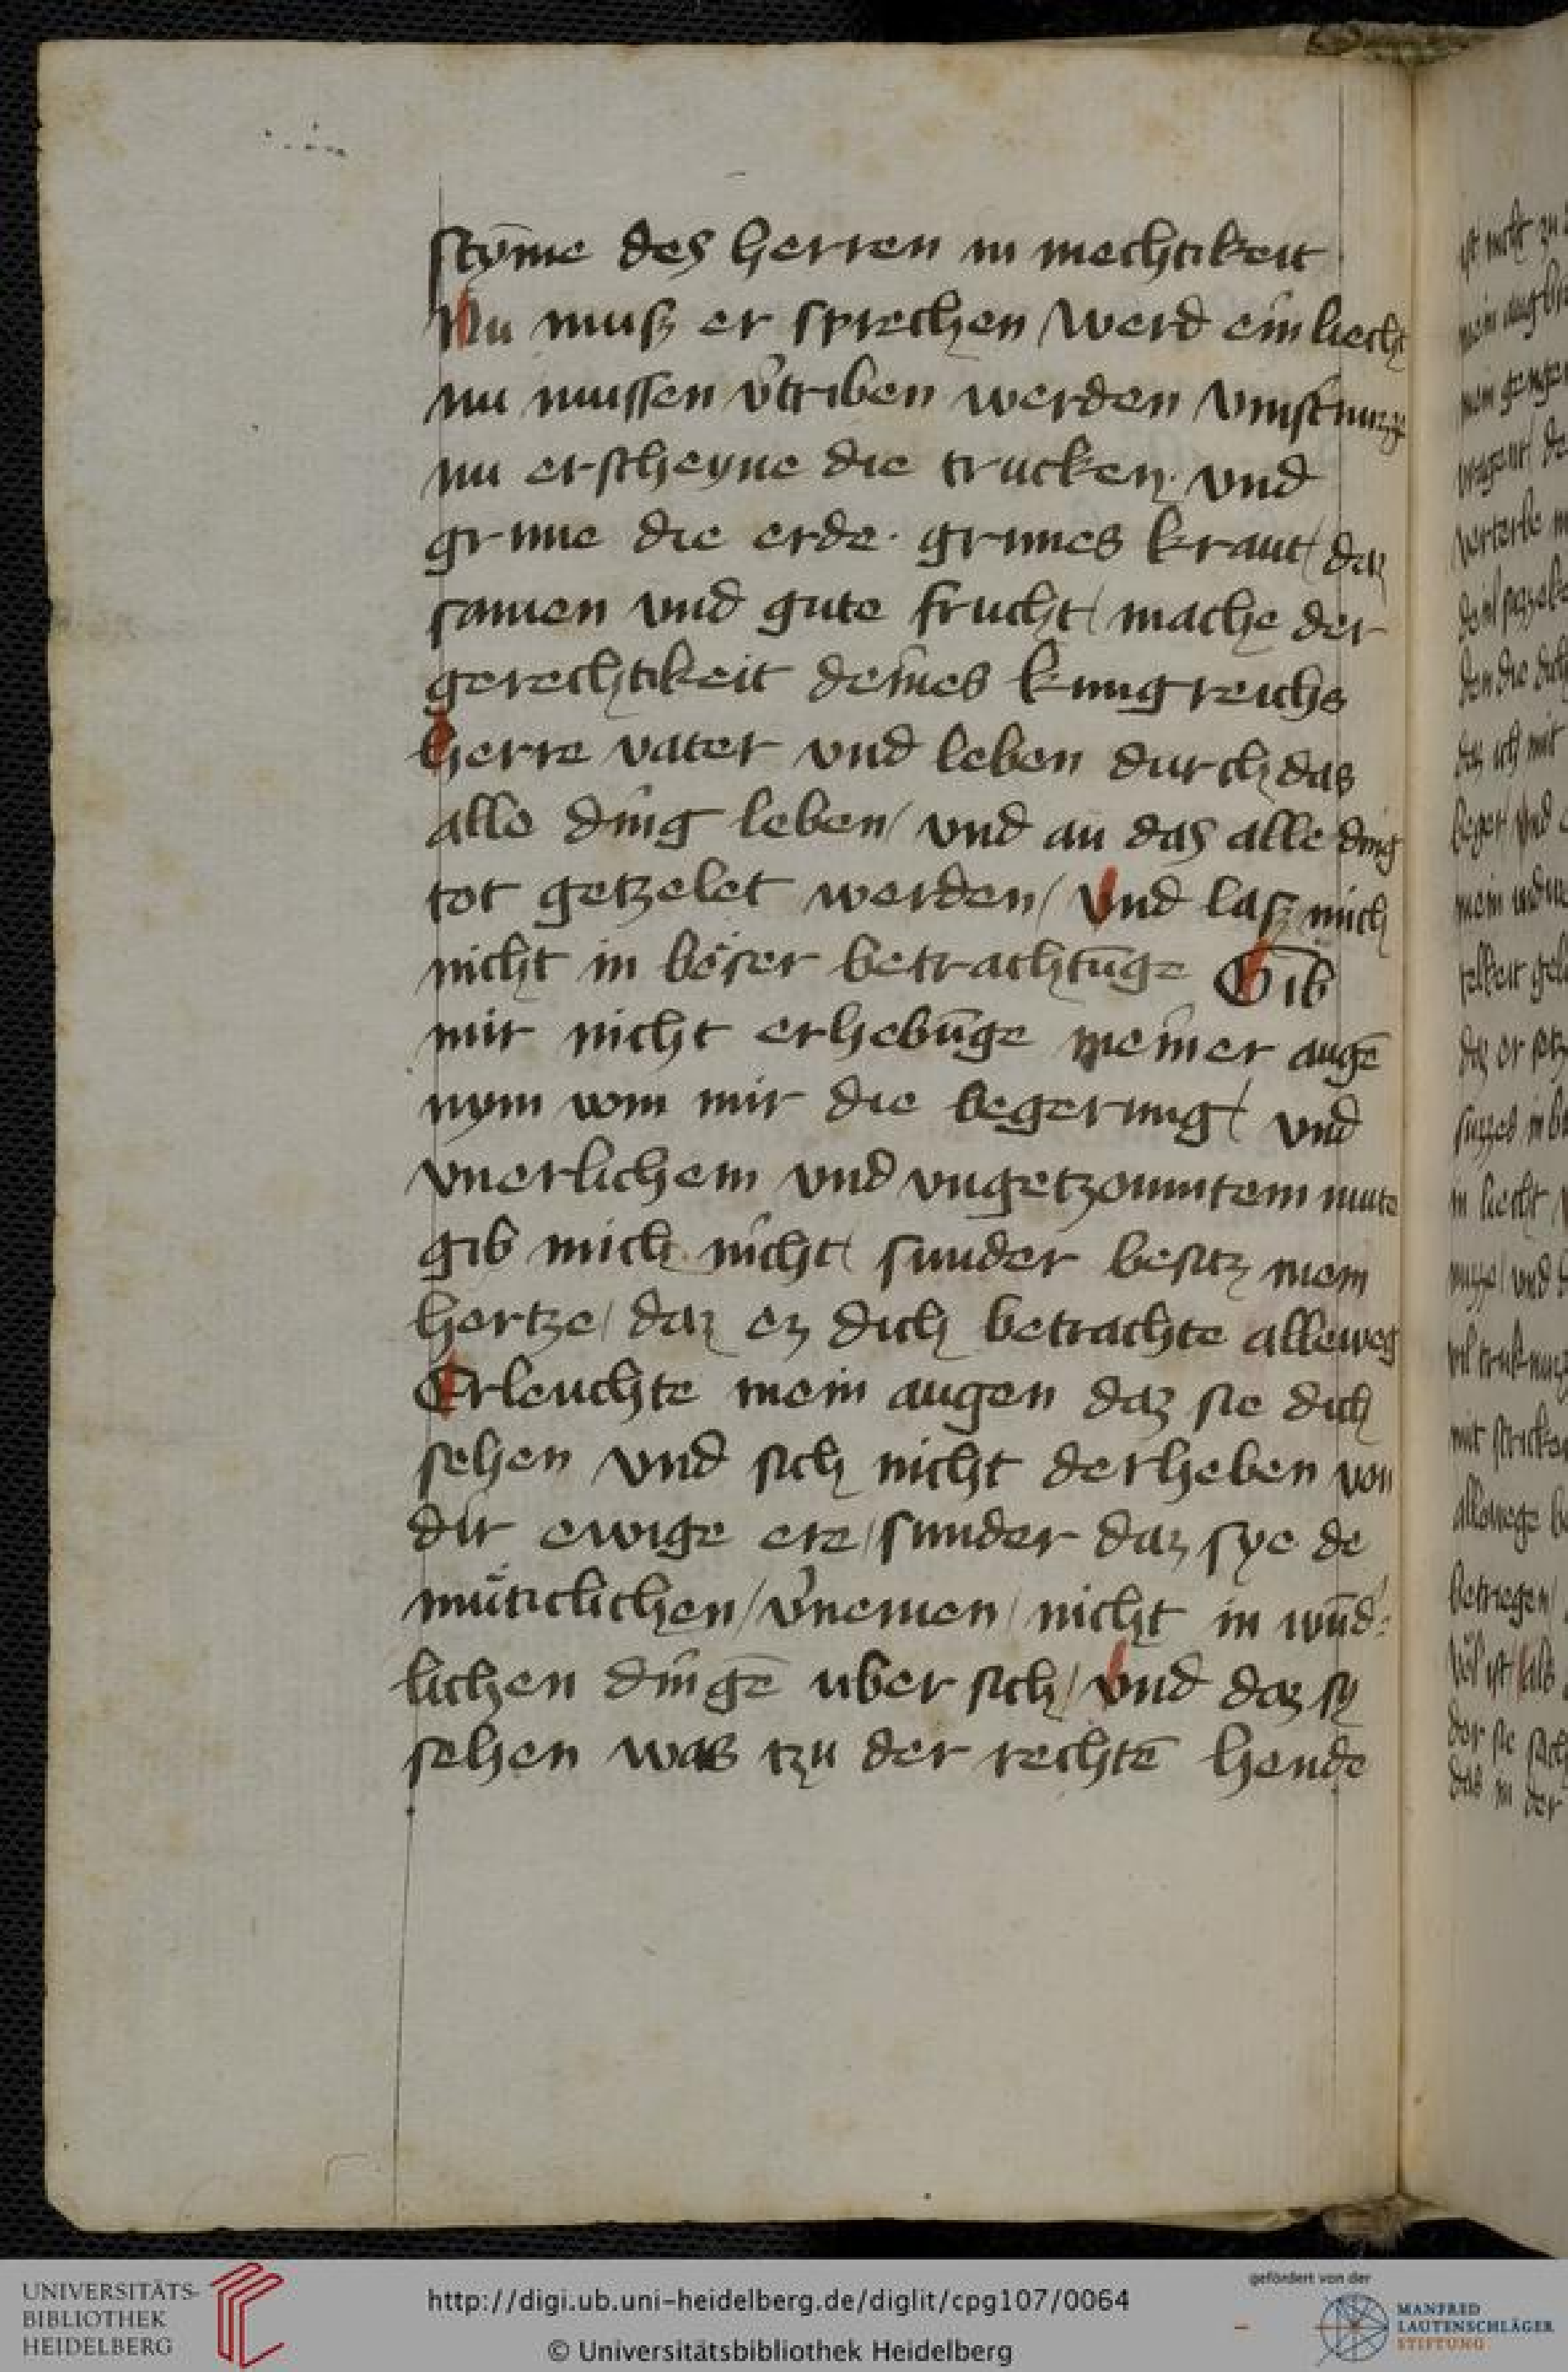 stym̄e des herren in mechtikeit
Nu musz er sprechen / werd ein liecht
nu mussen v̓triben werden vinsternuzz
nu erscheyne die trucken · vnd
grune die erde · grunes kraut / daz
samen vnd gute frucht / mache der
gerechtikeit deines kungreichs
herre vater vnd leben durch das
alle ding leben / vnd an das alle ding
tot getzelet werden / Vnd lasz mich
nicht in böser betrachtūge Gib
mir nicht erhebūge meiner augē
nym vom mir die begerung / vnd
vnerlichem vnd vngetzomntem mute
gib mich nicht / sunder besitz mein
hertze / daz ez dich betrachte alleweg
Erleuchte mein augen daz sie dich
sehen vnd sich nicht derheben von
dir ewige ere / sunder daz sye de
müticlichen / v̓nemen / nicht in wūd̓
lichen dingē uber sich / vnd daz sy
sehen was tzu der rechtē hende
UNIVERSITÄTS-
BIBLIOTHEK
HEIDELBERG
http://digi.ub.uni-heidelberg.de/diglit/cpg107/0064
© Universitätsbibliothek Heidelberg
gefördert von der
MANFRED
LAUTENSCHLÄGER
STIFTUNG